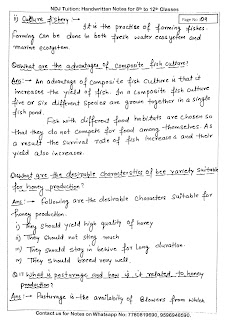 NDJ Tuition: Handwritten Notes for 8th to 12th Classes
Page No: 04
ii) Culture fishery :-
It is the practise of farming fishes.
Farming can be done in both fresh water ecosystem and
marine ecosystem.
Q. What are the advantages of composite fish culture?
Ans :- An advantage of composite fish culture is that it
increases the yield of fish. In a composite fish culture
five or six different species are grown together in a single
fish pond.
Fish with different food habitats are chosen so
that they do not compete for food among themselves. As
a result the survival rate of fish increases and their
yield also increases.
What are the desirable characteristics of bee variety suitable
for honey production?
Ans :- Following are the desirable characters suitable for
honey production.
i) They should yield high quality of honey
ii) They should not sting much
They should stay in behive for long duration.
They should breed very well.
Q. What is pasturage and how is it related to honey
production?
Ans :- Pasturage is the availability of flowers from which
Contact us for Notes on Whatsapp No: 7780819590, 9596946590.